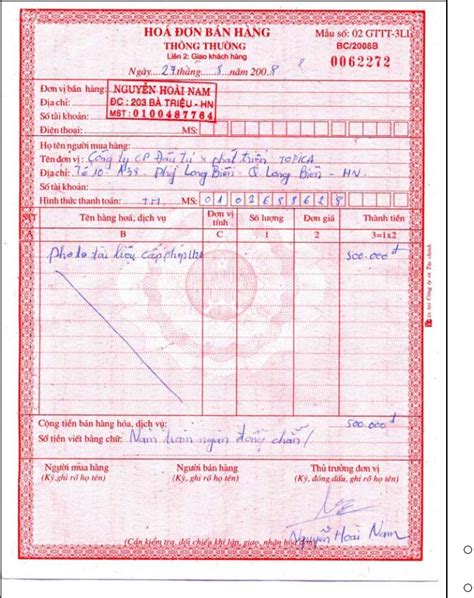 HOÁ ĐƠN BÁN HÀNG
THÔNG THƯỜNG
Liên 2: Giao khách hàng
Mẫu số: 02 GTTT-3LL
BC/2008B
0062272
Ngày...27tháng...8...năm 2008
Đơn vị bán hàng: NGUYỄN HOÀI NAM
Địa chỉ: ĐC : 203 BÀ TRIỆU - HN
Số tài khoản: MST : 0100487764
Điện thoại:
Họ tên người mua hàng:
Tên đơn vị: Công ty CP Đầu tư & phát triển TOPICA
Địa chỉ: Tổ 10 - Long Biên - Q Long Biên - HN
Số tài khoản:
Hình thức thanh toán: TM MS:
STT Tên hàng hoá, dịch vụ Đơn vị tính Số lượng Đơn giá Thành tiền
A B C 1 2 3=1x2
Photo tài liệu cấp phép 500.000đ
Cộng tiền bán hàng hóa, dịch vụ: 500.000đ
Số tiền viết bằng chữ: Năm trăm ngàn đồng chẵn/
Người mua hàng Người bán hàng Thủ trưởng đơn vị
(Ký, ghi rõ họ tên) (Ký, ghi rõ họ tên) (Ký, đóng dấu, ghi rõ họ tên)
Nguyễn Hoài Nam
(Cần kiểm tra, đối chiếu khi lập, giao, nhận hoá đơn)